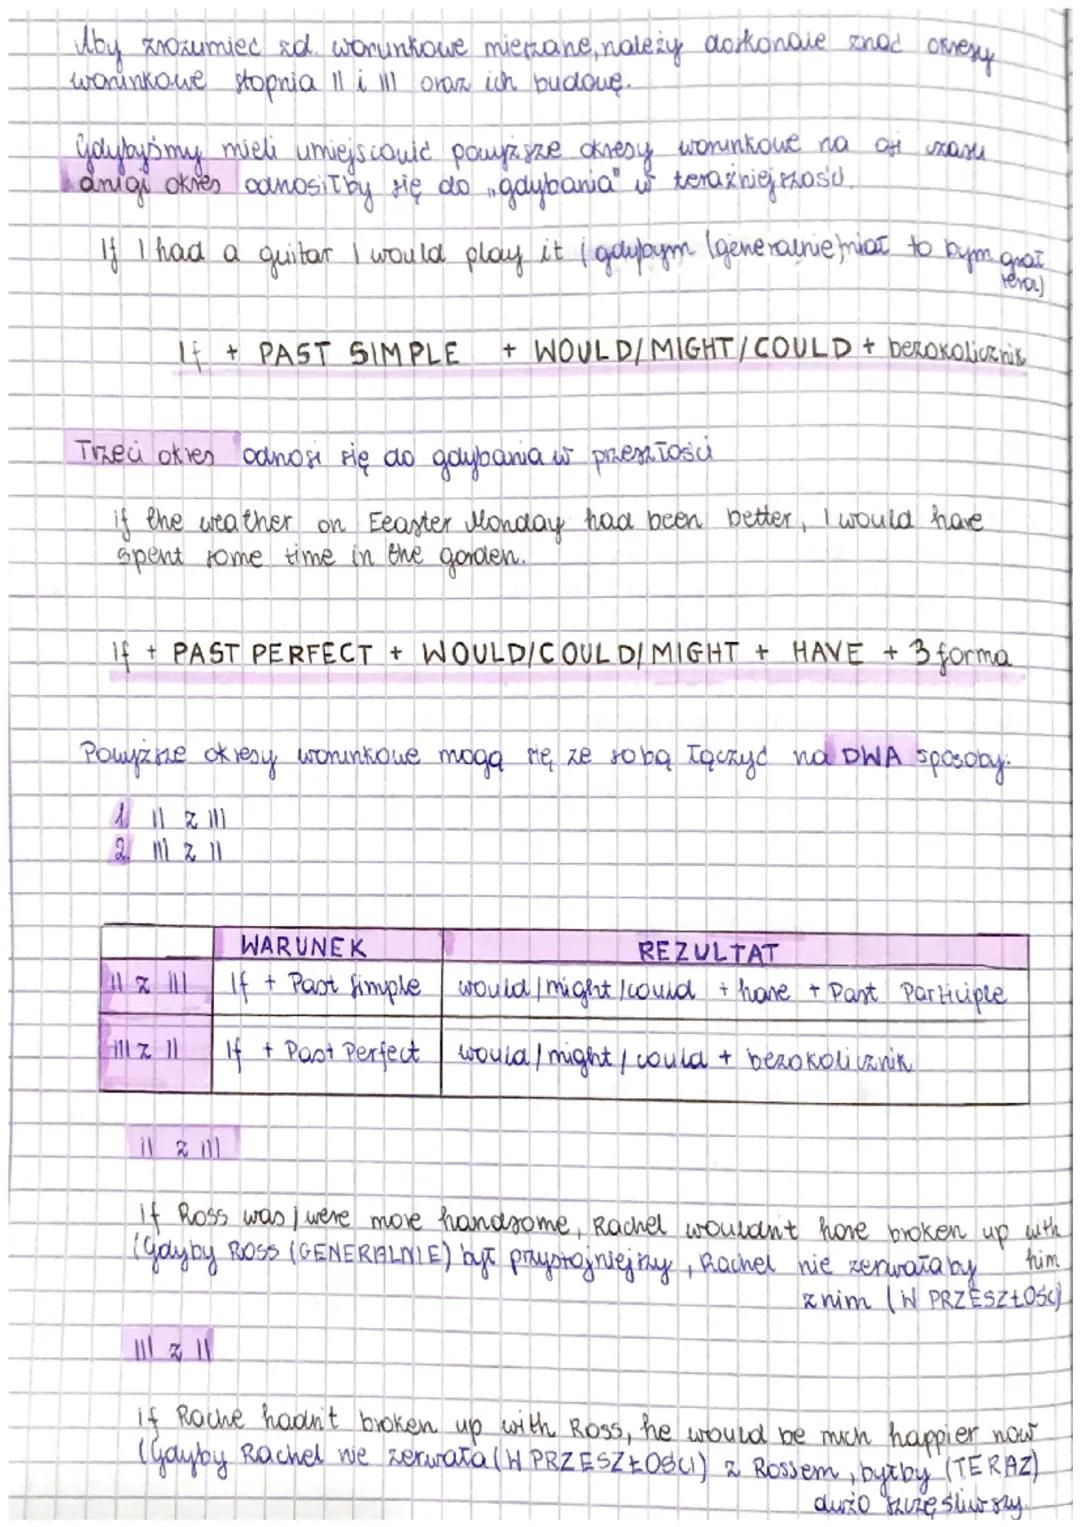 Aby zrozumieć zd. warunkowe mieszane, należy doskonale znać okresy
warunkowe stopnia II i III oraz ich budowę.
Gdybyśmy mieli umiejscowić powyższe okresy warunkowe na osi czasu
drugi okres odnosiłby się do "gdybania" w teraźniejszości.
If I had a guitar I would play it (gdybym (generalnie) miał to bym grał
teraz)
If + PAST SIMPLE + WOULD/MIGHT/COULD + bezokolicznik
Trzeci okres odnosi się do gdybania w przeszłości
if the weather on Eeaster Monday had been better, I would have
spent some time in the garden.
if + PAST PERFECT + WOULD/COULD/MIGHT + HAVE + 3 forma
Powyższe okresy warunkowe mogą się ze sobą łączyć na DWA sposoby:
1. II z III
2. III z II
WARUNEK REZULTAT
II z III If + Past Simple would/might/could + have + Past Participle
III z II If + Past Perfect would/might/could + bezokolicznik
II z III
If Ross was/were more handsome, Rachel wouldn't have broken up with
him
(Gdyby ROSS (GENERALNIE) był przystojniejszy, Rachel nie zerwałaby
z nim (W PRZESZŁOŚCI)
III z II
if Rache hadn't broken up with Ross, he would be much happier now
(Gdyby Rachel nie zerwała (W PRZESZŁOŚCI) z Rossem, byłby (TERAZ)
dużo szczęśliwszy.